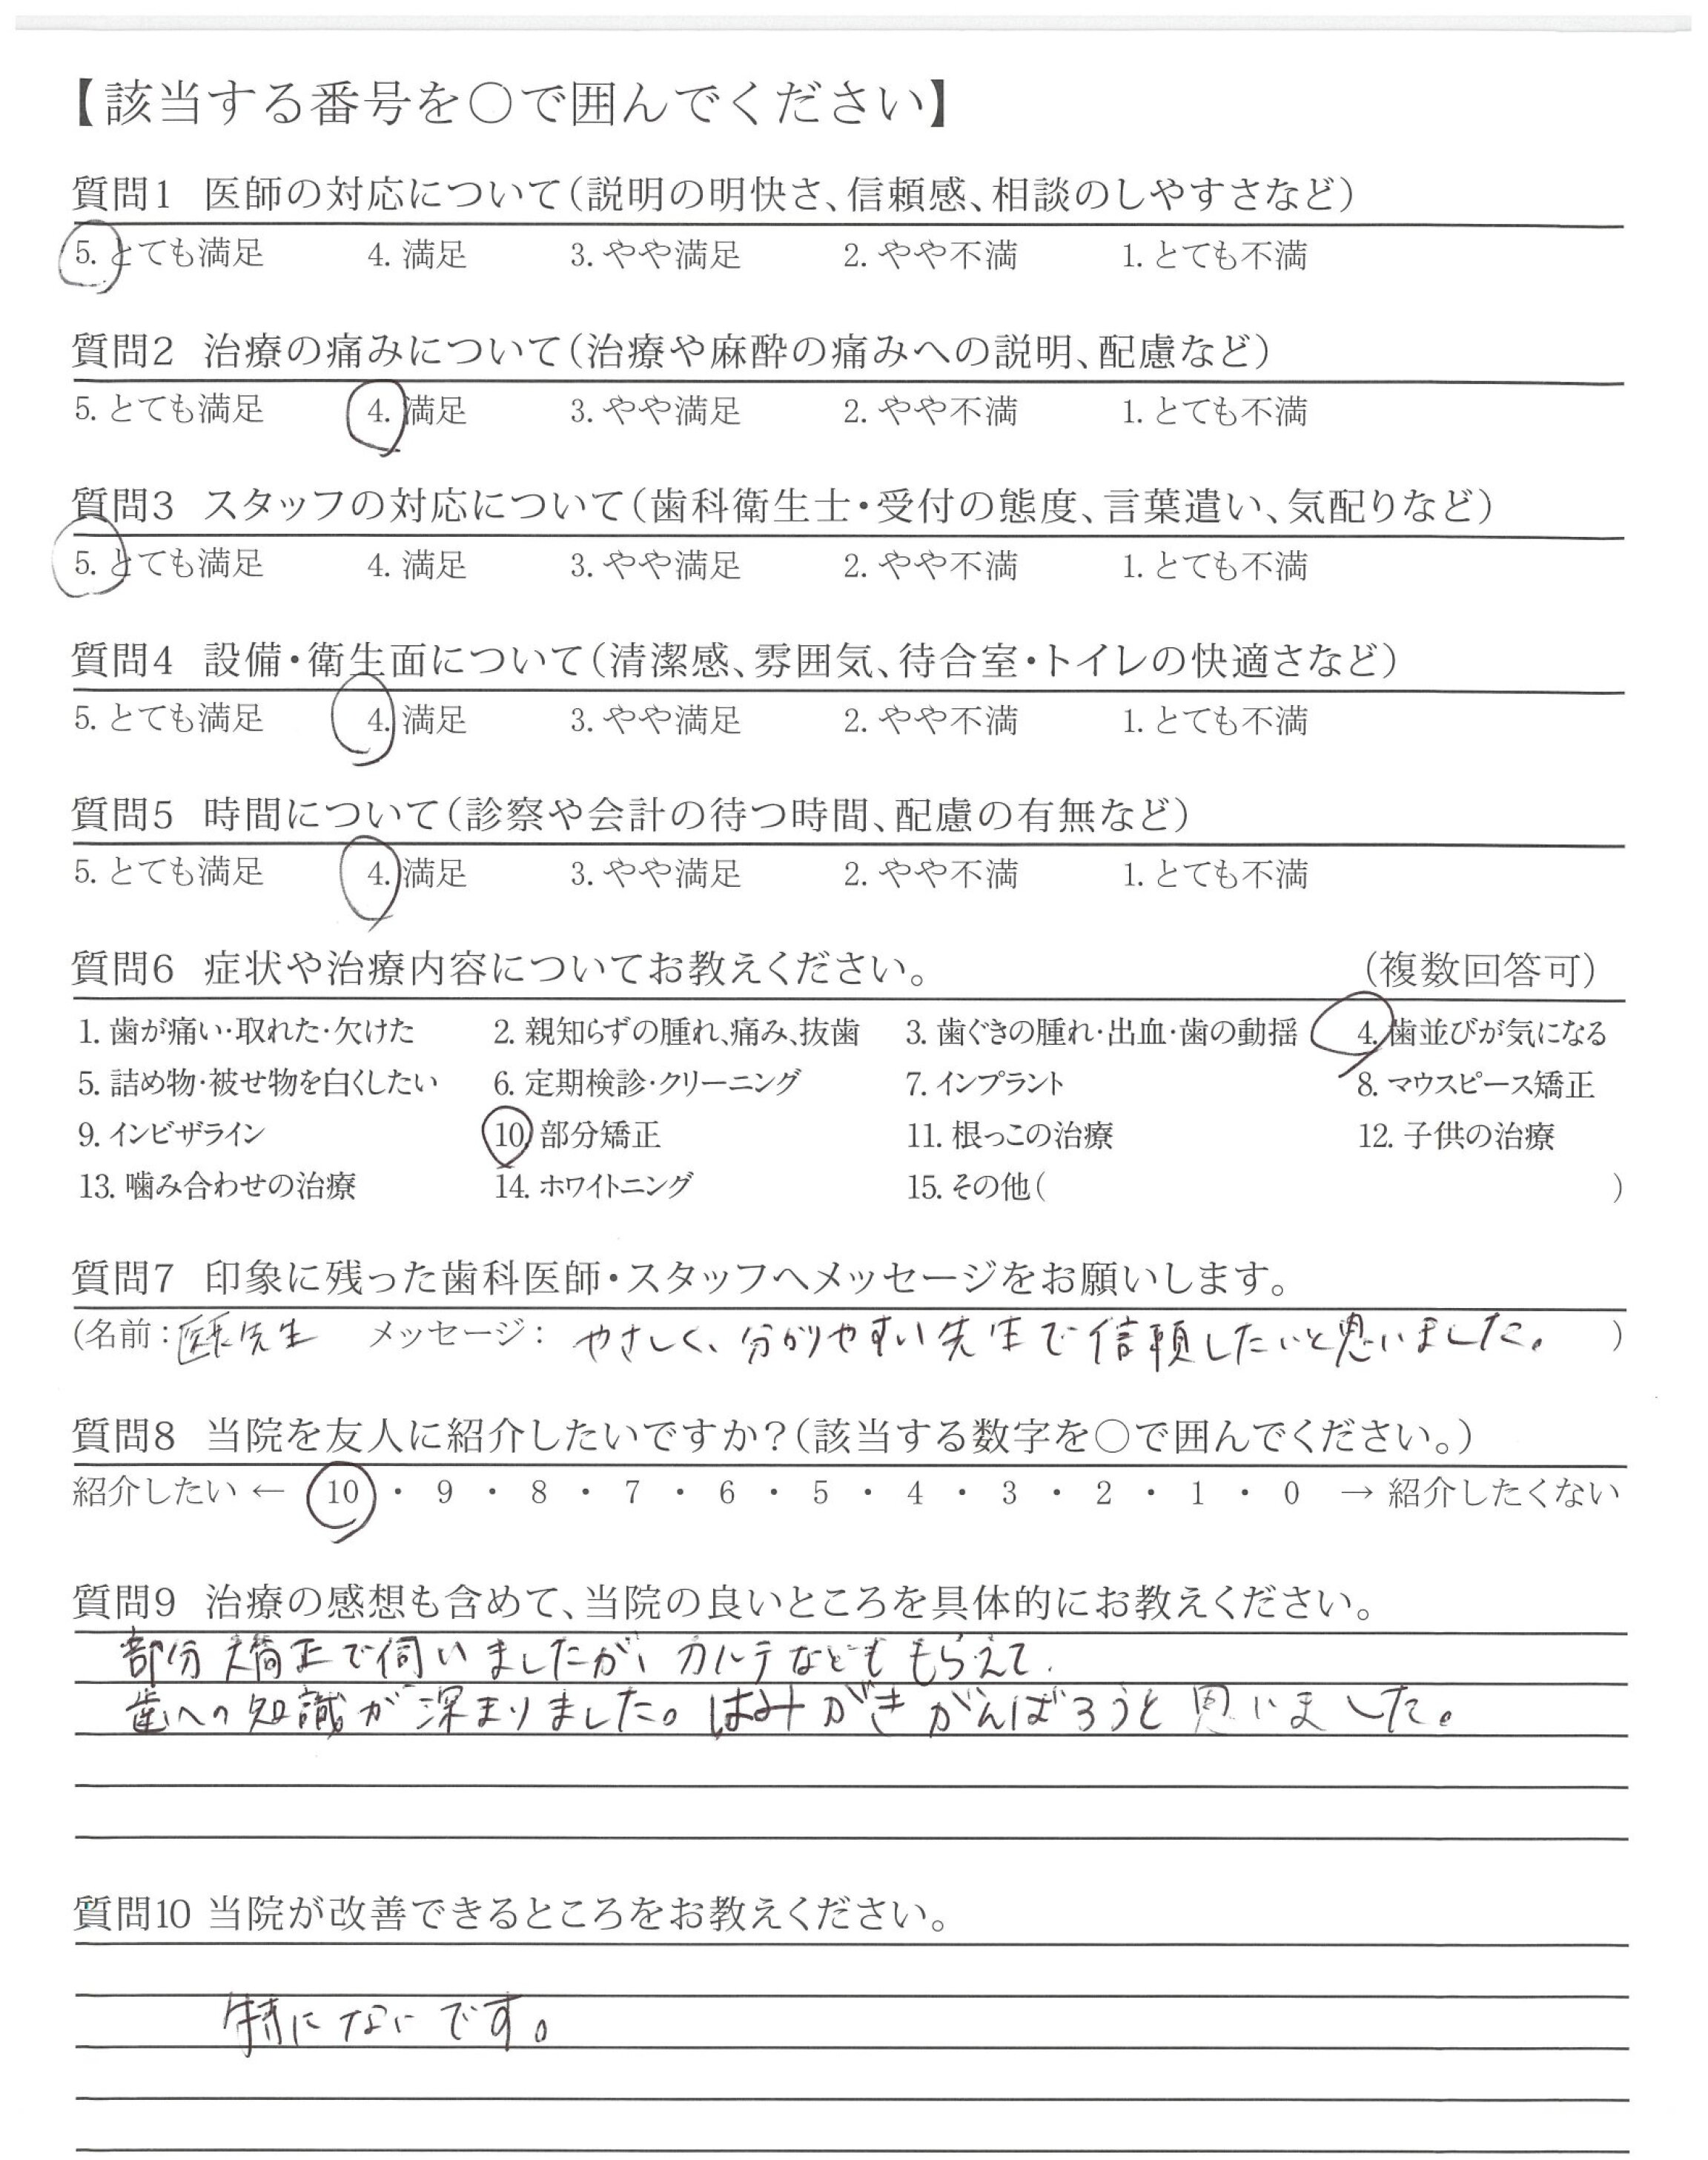 【該当する番号を○で囲んでください】
質問1 医師の対応について(説明の明快さ、信頼感、相談のしやすさなど)
5. とても満足 4. 満足 3. やや満足 2. やや不満 1. とても不満
質問2 治療の痛みについて(治療や麻酔の痛みへの説明、配慮など)
5. とても満足 4. 満足 3. やや満足 2. やや不満 1. とても不満
質問3 スタッフの対応について(歯科衛生士・受付の態度、言葉遣い、気配りなど)
5. とても満足 4. 満足 3. やや満足 2. やや不満 1. とても不満
質問4 設備・衛生面について(清潔感、雰囲気、待合室・トイレの快適さなど)
5. とても満足 4. 満足 3. やや満足 2. やや不満 1. とても不満
質問5 時間について(診察や会計の待つ時間、配慮の有無など)
5. とても満足 4. 満足 3. やや満足 2. やや不満 1. とても不満
質問6 症状や治療内容についてお教えください。 (複数回答可)
1. 歯が痛い・取れた・欠けた 2. 親知らずの腫れ、痛み、抜歯 3. 歯ぐきの腫れ・出血・歯の動揺 4. 歯並びが気になる
5. 詰め物・被せ物を白くしたい 6. 定期検診・クリーニング 7. インプラント 8. マウスピース矯正
9. インビザライン 10. 部分矯正 11. 根っこの治療 12. 子供の治療
13. 噛み合わせの治療 14. ホワイトニング 15. その他( )
質問7 印象に残った歯科医師・スタッフへメッセージをお願いします。
(名前: 先生 メッセージ: やさしく、分かりやすい先生で信頼したいと思いました。 )
質問8 当院を友人に紹介したいですか?(該当する数字を○で囲んでください。)
紹介したい ← 10 ・ 9 ・ 8 ・ 7 ・ 6 ・ 5 ・ 4 ・ 3 ・ 2 ・ 1 ・ 0 → 紹介したくない
質問9 治療の感想も含めて、当院の良いところを具体的にお教えください。
部分矯正で伺いましたが、カルテなどももらえて、
歯への知識が深まりました。はみがきがんばろうと思いました。
質問10 当院が改善できるところをお教えください。
特にないです。